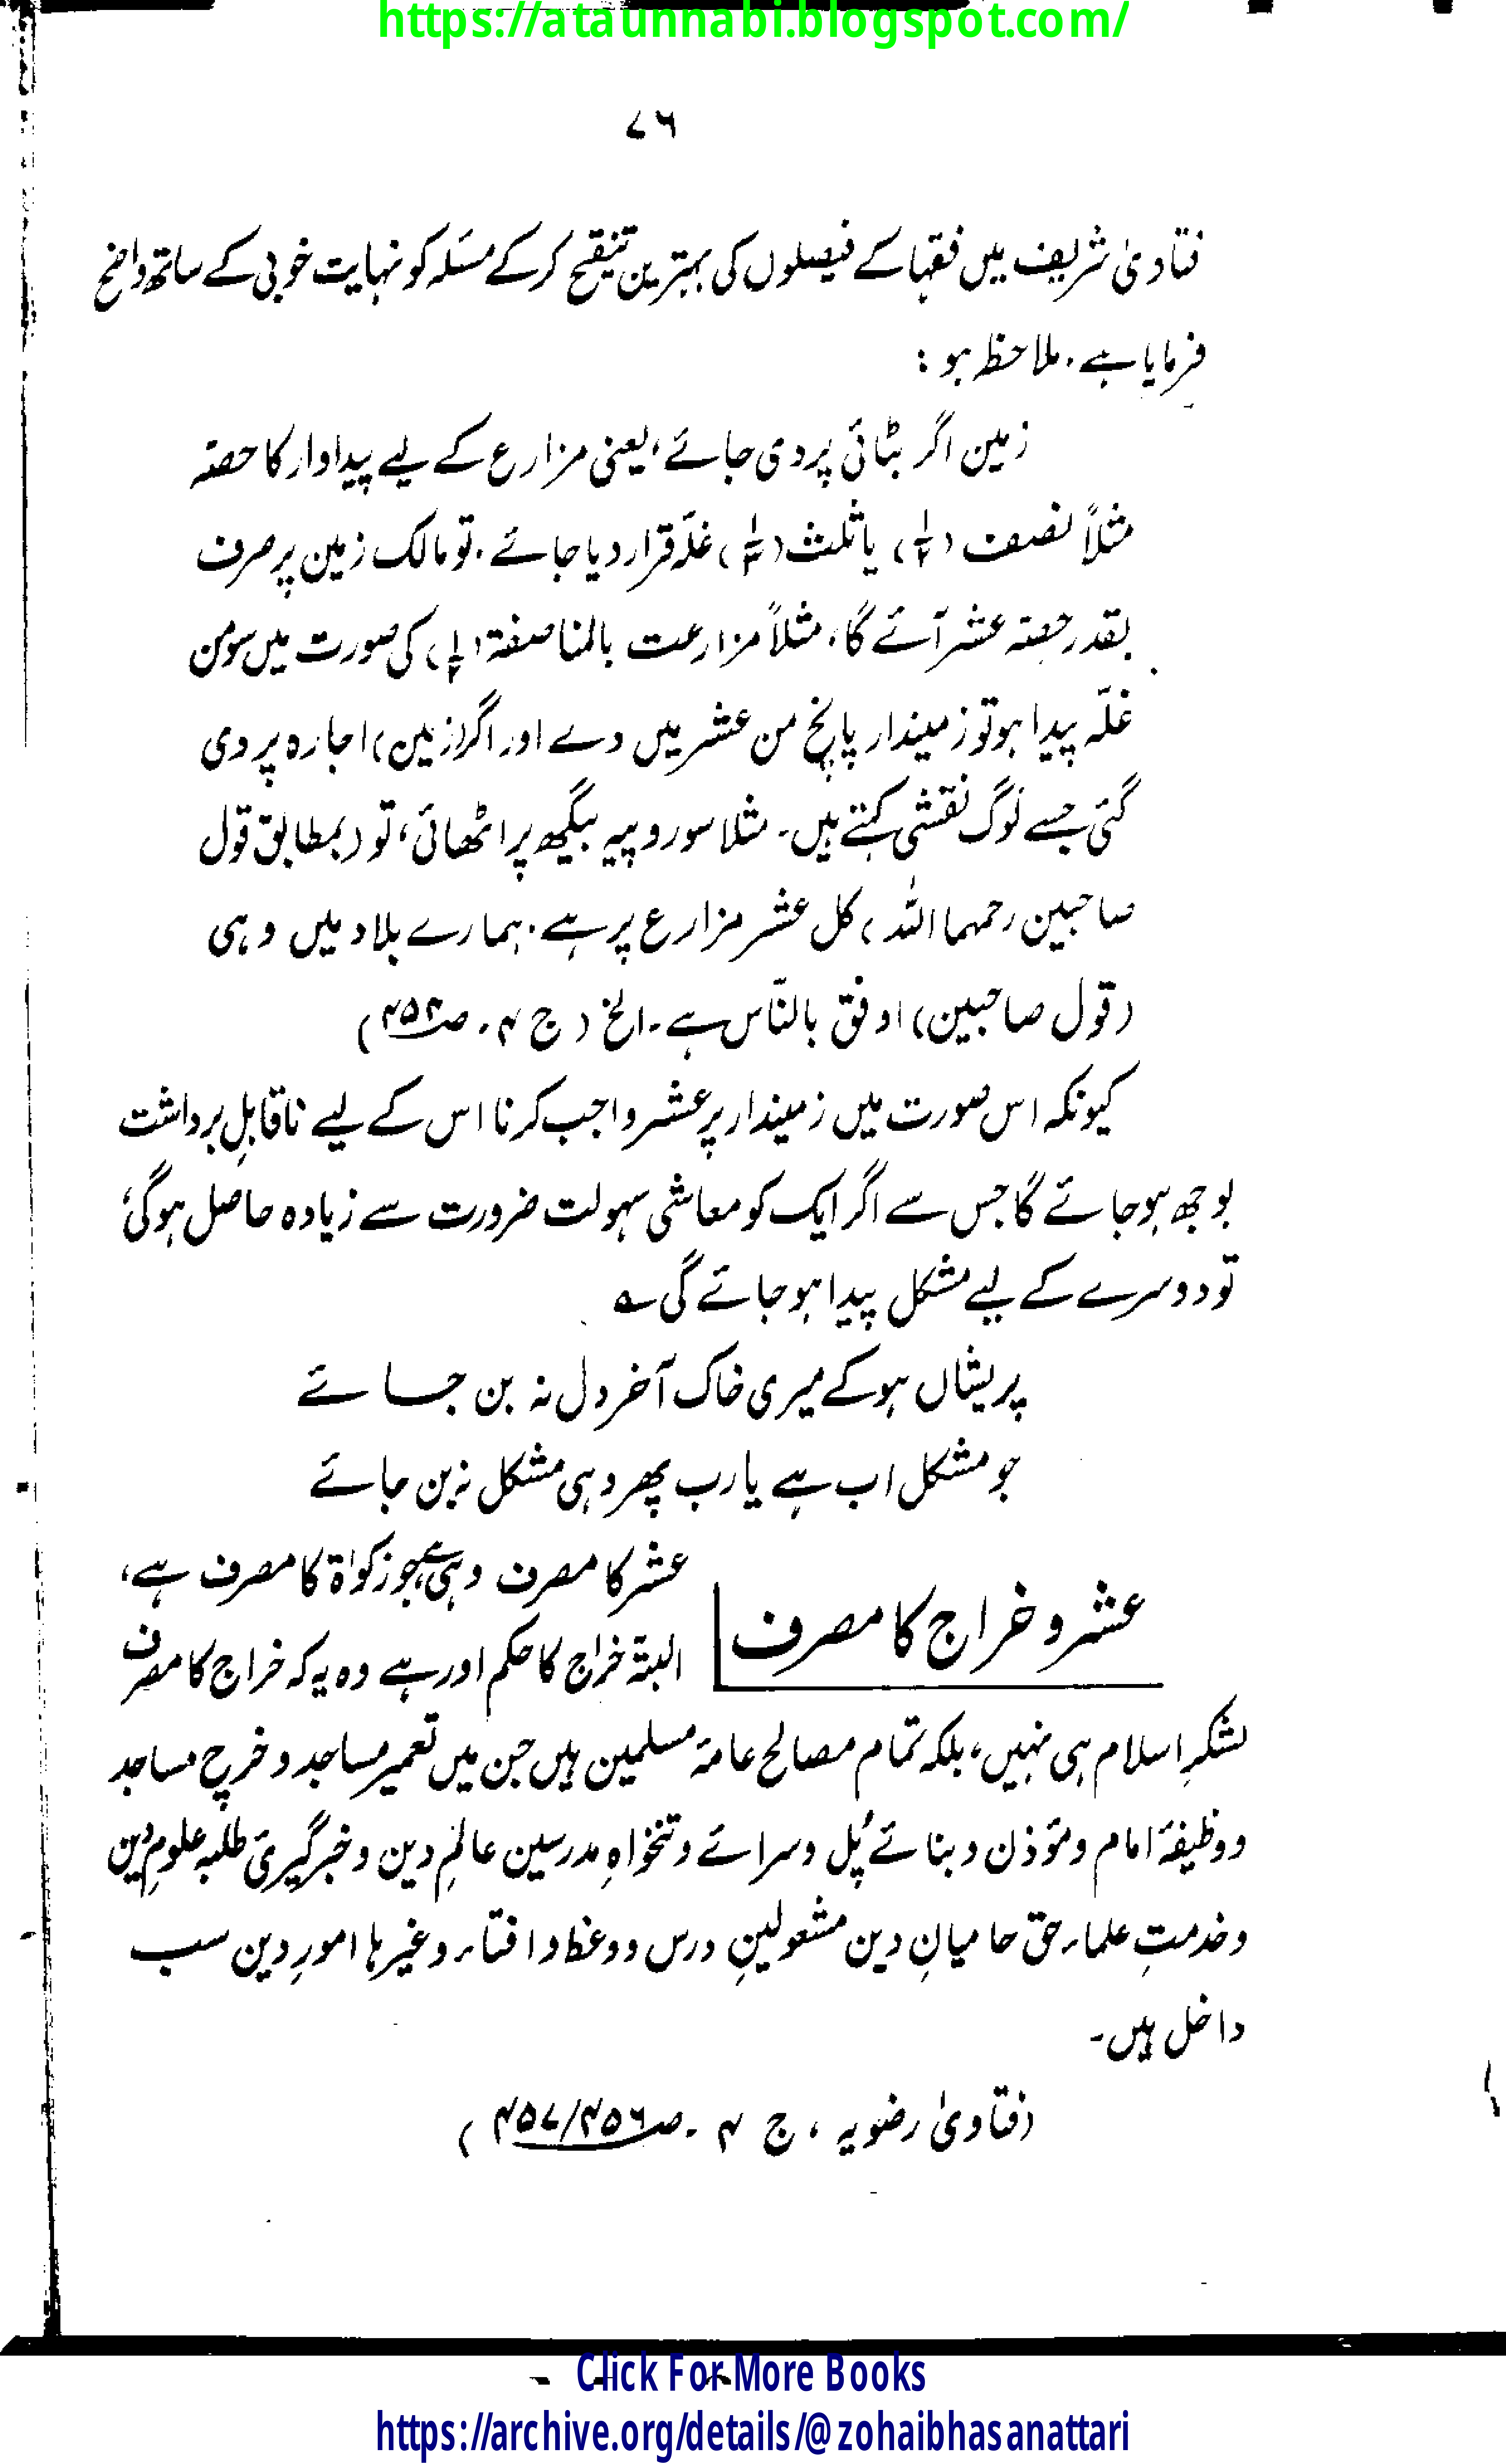 https://ataunnabi.blogspot.com/
۷۶
فتاویٰ شریف میں فقہا کے فیصلوں کی بہترین تنقیح کرکے مسئلہ کو نہایت خوبی کے ساتھ واضح
فرمایا ہے۔ ملاحظہ ہو :
زمین اگر بٹائی پر دی جائے، یعنی مزارع کے لیے پیداوار کا حصّہ
مثلاً نصف (۱/۲) یا ثلث (۱/۳) غلّہ قرار دیا جائے۔ تو مالک زمین پر صرف
بقدر حصّہ عشر آئے گا، مثلاً مزارعت بالمناصفۃ (۱/۲) کی صورت میں سو من
غلّہ پیدا ہو تو زمیندار پانچ من عشر میں دے اور اگر (زمین) اجارہ پر دی
گئی جسے لوگ نقشی کہتے ہیں۔ مثلا سو روپیہ بیگھ پر اٹھائی، تو (بمطابق قول
صاحبین رحمہما اللہ) کل عشر مزارع پر ہے۔ ہمارے بلاد میں وہی
(قول صاحبین) اوفق بالنّاس ہے۔ الخ (ج ۴۔ صـ۴۵۴)
کیونکہ اس صورت میں زمیندار پر عشر واجب کرنا اس کے لیے ناقابلِ برداشت
بوجھ ہو جائے گا جس سے اگر ایک کو معاشی سہولت ضرورت سے زیادہ حاصل ہوگی،
تو دوسرے کے لیے مشکل پیدا ہو جائے گی ؎
پریشاں ہو کے میری خاک آخر دل نہ بن جائے
جو مشکل اب ہے یارب پھر وہی مشکل نہ بن جائے
عشر و خراج کا مصرف
عشر کا مصرف وہی ہے جو زکوٰۃ کا مصرف ہے،
البتہ خراج کا حکم اور ہے وہ یہ کہ خراج کا مصرف
لشکرِ اسلام ہی نہیں، بلکہ تمام مصالح عامۂ مسلمین ہیں جن میں تعمیر مساجد و خرچ مساجد
و وظیفۂ امام و مؤذن و بنائے پُل و سرائے و تنخواہِ مدرسین عالمِ دین و خبرگیریٔ طلبہ علومِ دین
و خدمتِ علماء حق حامیانِ دین مشغولینِ درس و وعظ و افتاء وغیرہا امورِ دین سب
داخل ہیں۔
(فتاویٰ رضویہ، ج ۴۔ صـ۴۵۷/۴۵۶)
Click For More Books
https://archive.org/details/@zohaibhasanattari